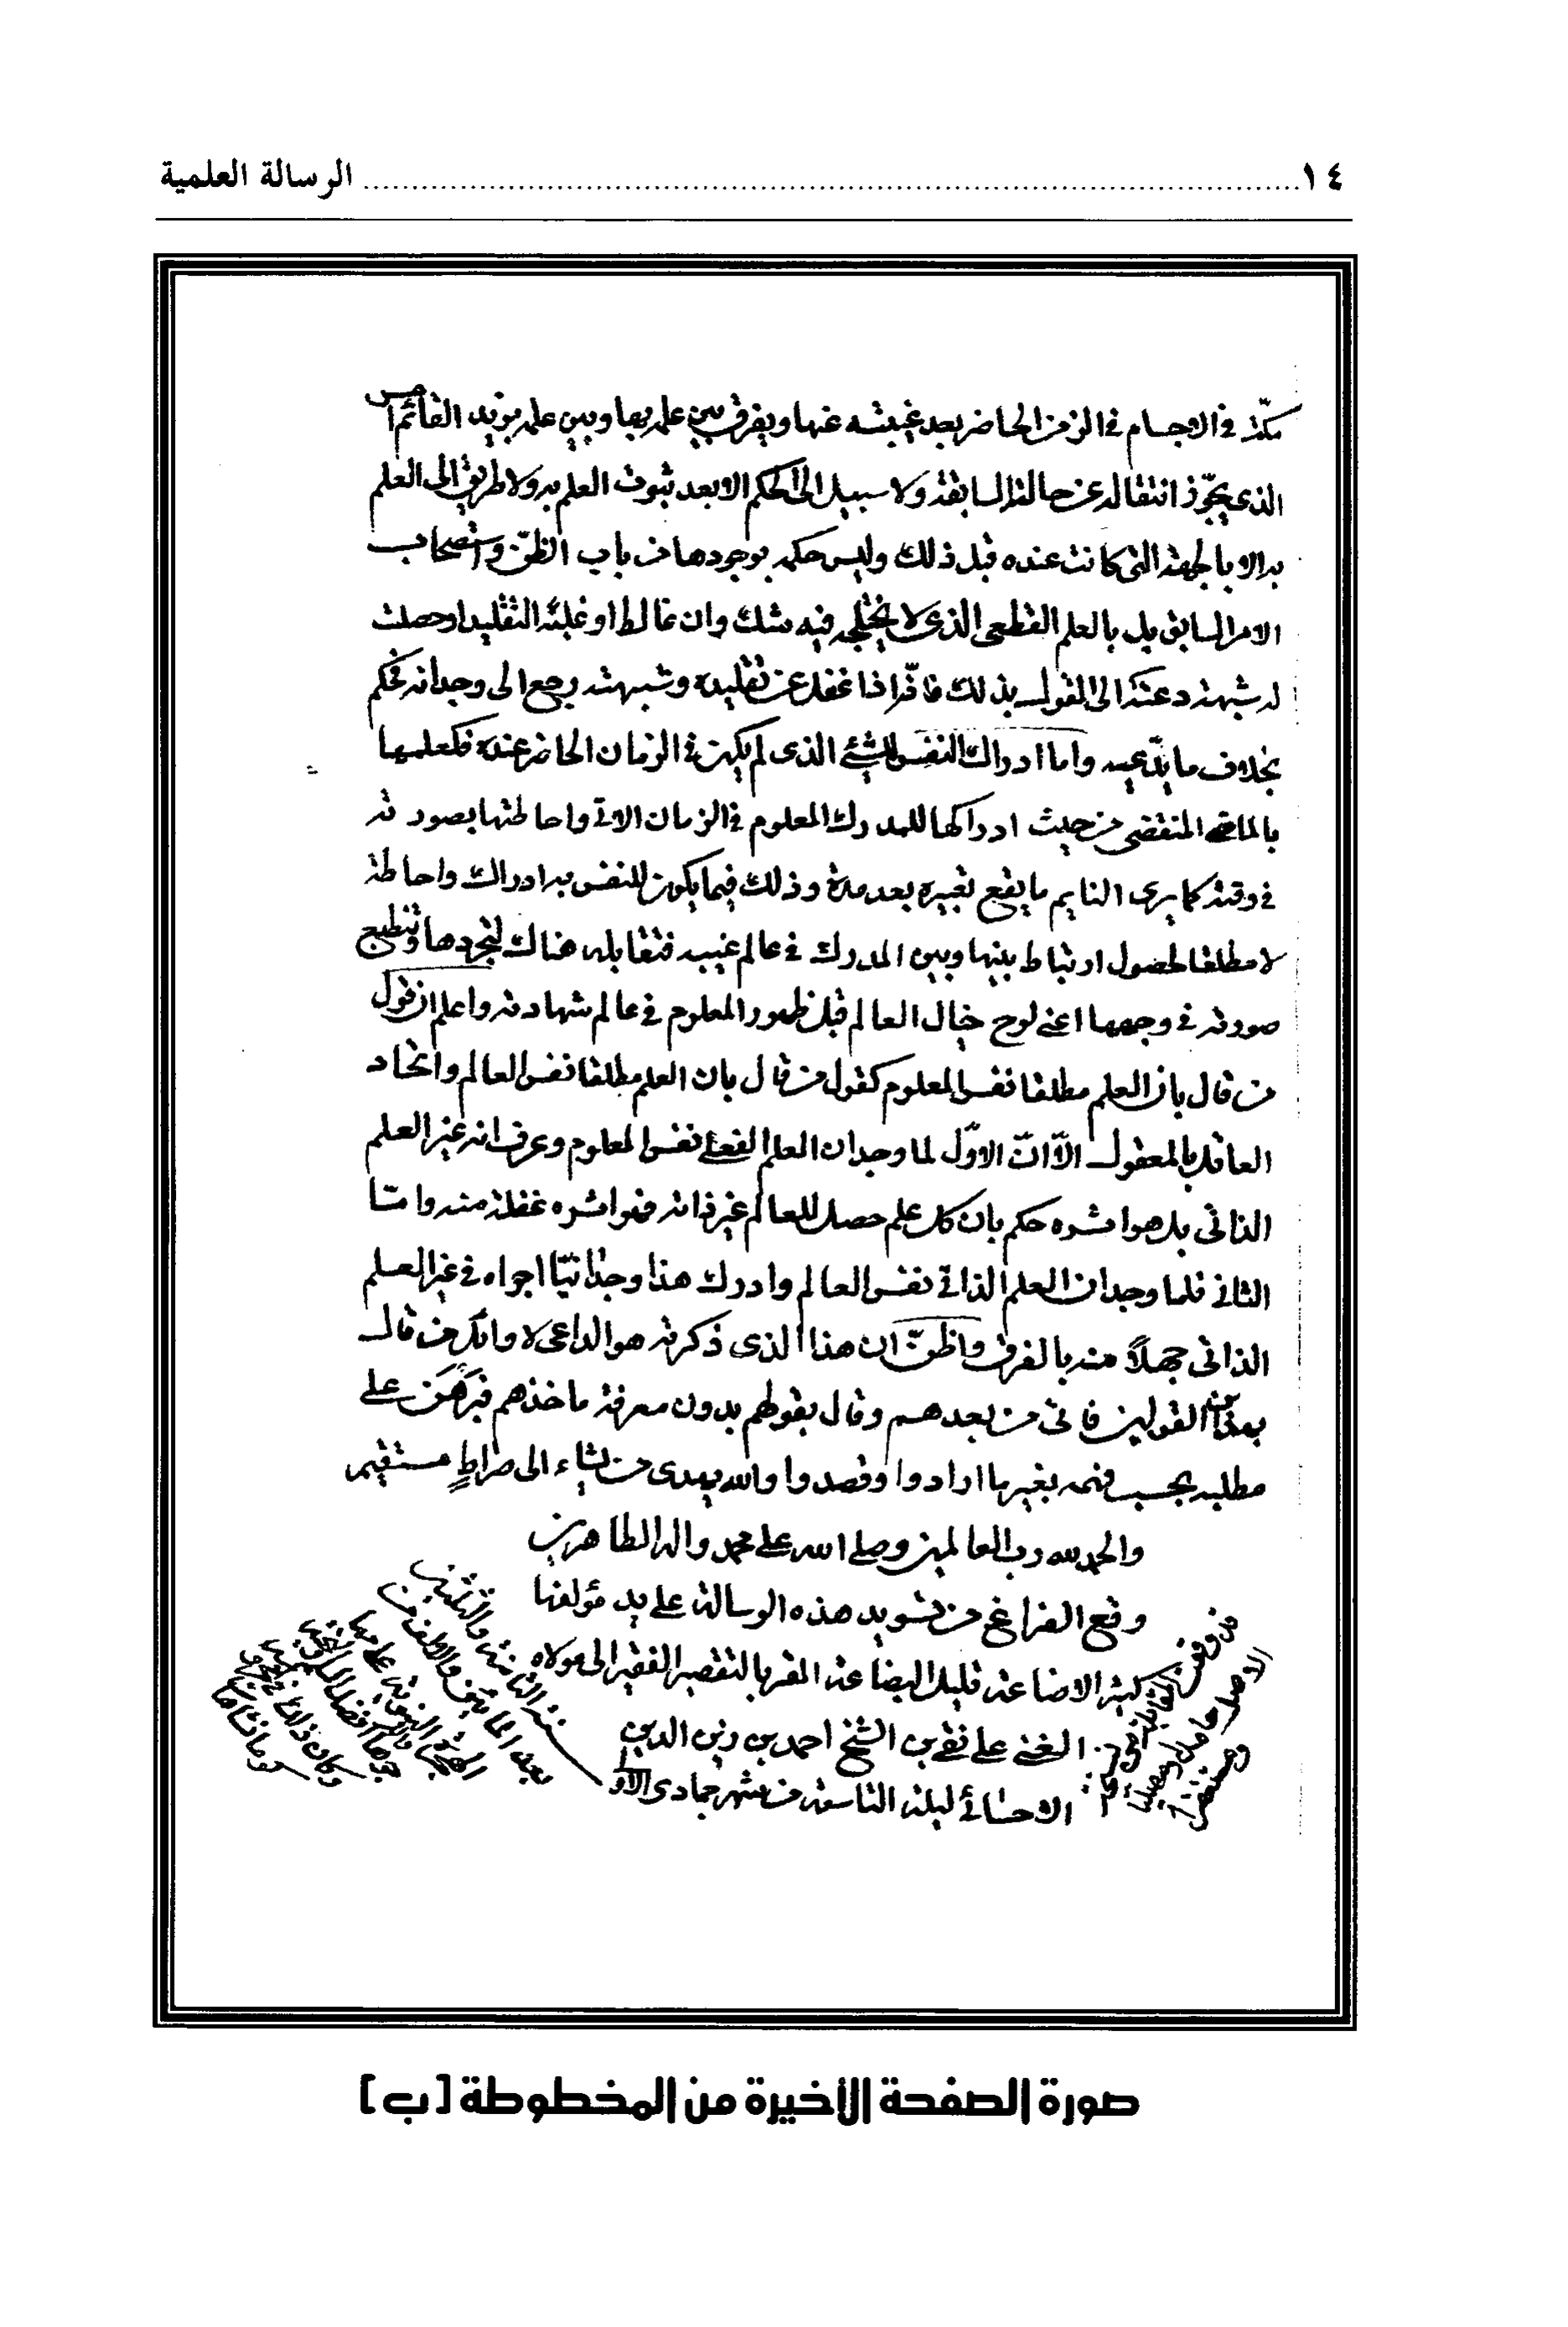 ١٤ ........ الرسالة العلمية
مكّة في الاجسام في الزمن الحاضر بعد غيبته عنها ويفرق بين علمه بها وبين علمه بزيد القائم امس
الذي يجوّز انتقاله عن حالته السابقة ولا سبيل الى الحكم الا بعد ثبوت العلم به ولا طريق الى العلم
به الا بالجهة التي كانت عنده قبل ذلك وليس حكمه بوجودها من باب الظنّ واستصحاب
الامر السابق بل بالعلم القطعي الذي لا يختلجه فيه شك وان غالط او غلبته التقليد او حصلت
له شبهة دعته الى القول بذلك فانّه اذا غفل عن تقليده وشبهته رجع الى وجدانه فحكم
بخلاف ما يدّعيه واما ادراك النفس للشيء الذي لم يكن في الزمان الحاضر عنده فكعلمها
بالماضي المنقضي من حيث ادراكها للمدرك المعلوم في الزمان الاتي واحاطتها بصورته
في وقته كما يرى النايم ما يقع تعبيره بعد مدة وذلك فيما يكون للنفس به ادراك واحاطة
لا مطلقا لحصول ارتباط بينها وبين المدرك في عالم غيبه فتقابله هناك لتجردها وتنطبع
صورته في وجهها اعني لوح خيال العالم قبل ظهور المعلوم في عالم شهادته واعلم ان قول
من قال بان العلم مطلقا نفس المعلوم كقول من قال بان العلم مطلقا نفس العالم واتحاد
العاقل بالمعقول الّا انّ الاوّل لما وجد ان العلم الفعلي نفس المعلوم وعرف انه غير العلم
الذاتي بل هو اثره حكم بان كل علم حصل للعالم غير ذاته فهو اثره غفلة منه وامّا
الثاني فلما وجد ان العلم الذاتي نفس العالم وادرك هذا وجدانيّا اجراه في غير العلم
الذاتي جهلاً منه بالفرق واظنّ ان هذا الذي ذكرته هو الداعي لاوائل من قال
بهذين القولين فاتى من بعدهم وقال بقولهم بدون معرفة ماخذهم فبرهن على
مطلبه بحسب فهمه بغير ما ارادوا وقصدوا والله يهدي من يشاء الى صراطٍ مستقيم
والحمد لله رب العالمين وصلى الله على محمد واله الطاهرين
وقع الفراغ من تسويد هذه الرسالة على يد مؤلفها
كثير الاضاعة قليل البضاعة المقر بالتقصير الفقير الى مولاه
الغني علي نقي بن الشيخ احمد بن زين الدين
الاحسائي ليلة التاسعة من شهر جمادي الاولى
سنة الثامنة والثلثين
بعد المائتين والالف من
الهجرة النبوية على مهاجرها
صورة الصفحة الأخيرة من المخطوطة [ب]